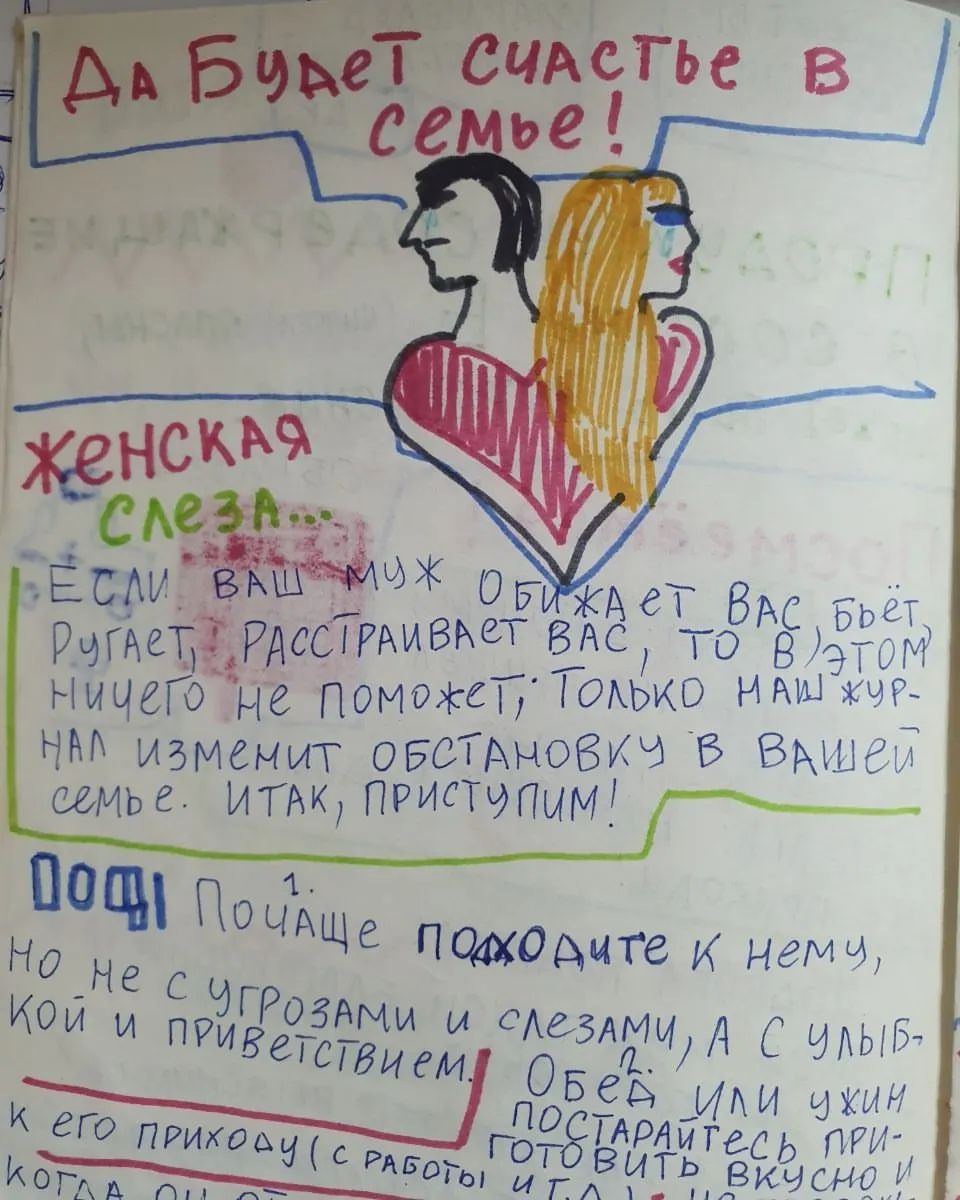 Да Будет счастье в
семье!
Женская
слеза...
Если ваш муж обижает Вас, бьёт,
ругает, расстраивает вас, то в этом
ничего не поможет; только наш жур-
нал изменит обстановку в вашей
семье. Итак, приступим!
1.
Почаще подходите к нему,
но не с угрозами и слезами, а с улыб-
кой и приветствием.
2.
Обед или ужин
постарайтесь при-
готовить вкусно и
к его приходу (с работы и т.д.)
когда он